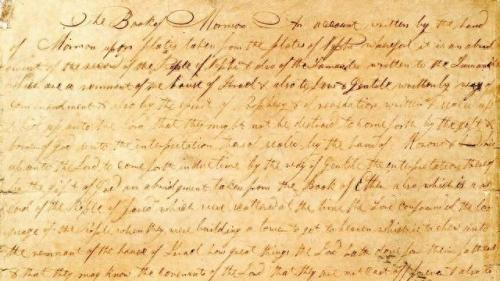 The Book of Mormon An account written by the hand
of Mormon upon plates taken from the plates of Nephi wherefore it is an abrid
gment of the record of the People of Nephi & also of the Lamanites written to the Lamanit
which are a remnant of the house of Israel & also to Jew & Gentile written by way
commandment & also by the spirit of Prophesy & of revelation written & sealed up
& hid up unto the Lord that they might not be destroid to come forth by the gift &
power of God unto the interpretation thereof sealed by the hand of Moroni & hid
up unto the Lord to come forth in due time by the way of Gentile the interpretation thereof
by the gift of God an abridgment taken from the Book of Ether also which is a re
cord of the People of Jared which were scattered at the time the Lord confounded the lan
guage of the People when they were building a tower to get to heaven which is to shew unto
the remnant of the house of Israel how great things the Lord hath done for their fathers
& that they may know the covenants of the Lord that they are not cast off forever & also to